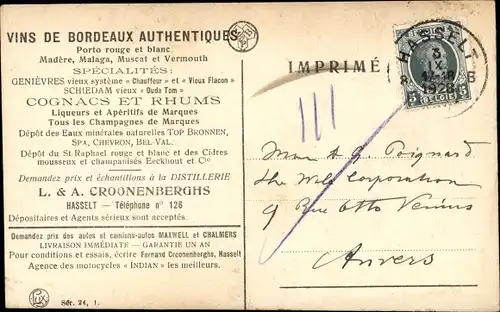 VINS DE BORDEAUX AUTHENTIQUES
Porto rouge et blanc
Madère, Malaga, Muscat et Vermouth
SPÉCIALITÉS:
GENIÈVRES vieux système « Chauffeur » et « Vieux Flacon »
SCHIEDAM vieux « Oude Tom »
COGNACS ET RHUMS
Liqueurs et Apéritifs de Marques
Tous les Champagnes de Marques
Dépôt des Eaux minérales naturelles TOP BRONNEN,
SPA, CHEVRON, BEL-VAL.
Dépôt du St Raphael rouge et blanc et des Cidres
mousseux et champanisés Eeckhout et Cie
Demandez prix et échantillons à la DISTILLERIE
L. & A. CROONENBERGHS
HASSELT — Téléphone n° 126
Dépositaires et Agents sérieux sont acceptés.
Demandez prix des autos et camions-autos MAXWELL et CHALMERS
LIVRAISON IMMÉDIATE — GARANTIE UN AN
Pour conditions et essais, écrire Fernand Croonenberghs, Hasselt
Agence des motocycles « INDIAN » les meilleurs.
Sér. 24, 1.
IMPRIMÉ
HASSELT
3
IX
1928
B
5
BELGIE
5
III
Mon A. G. Poignard
The Wild Corporation
9 Rue Otto Venius
Anvers